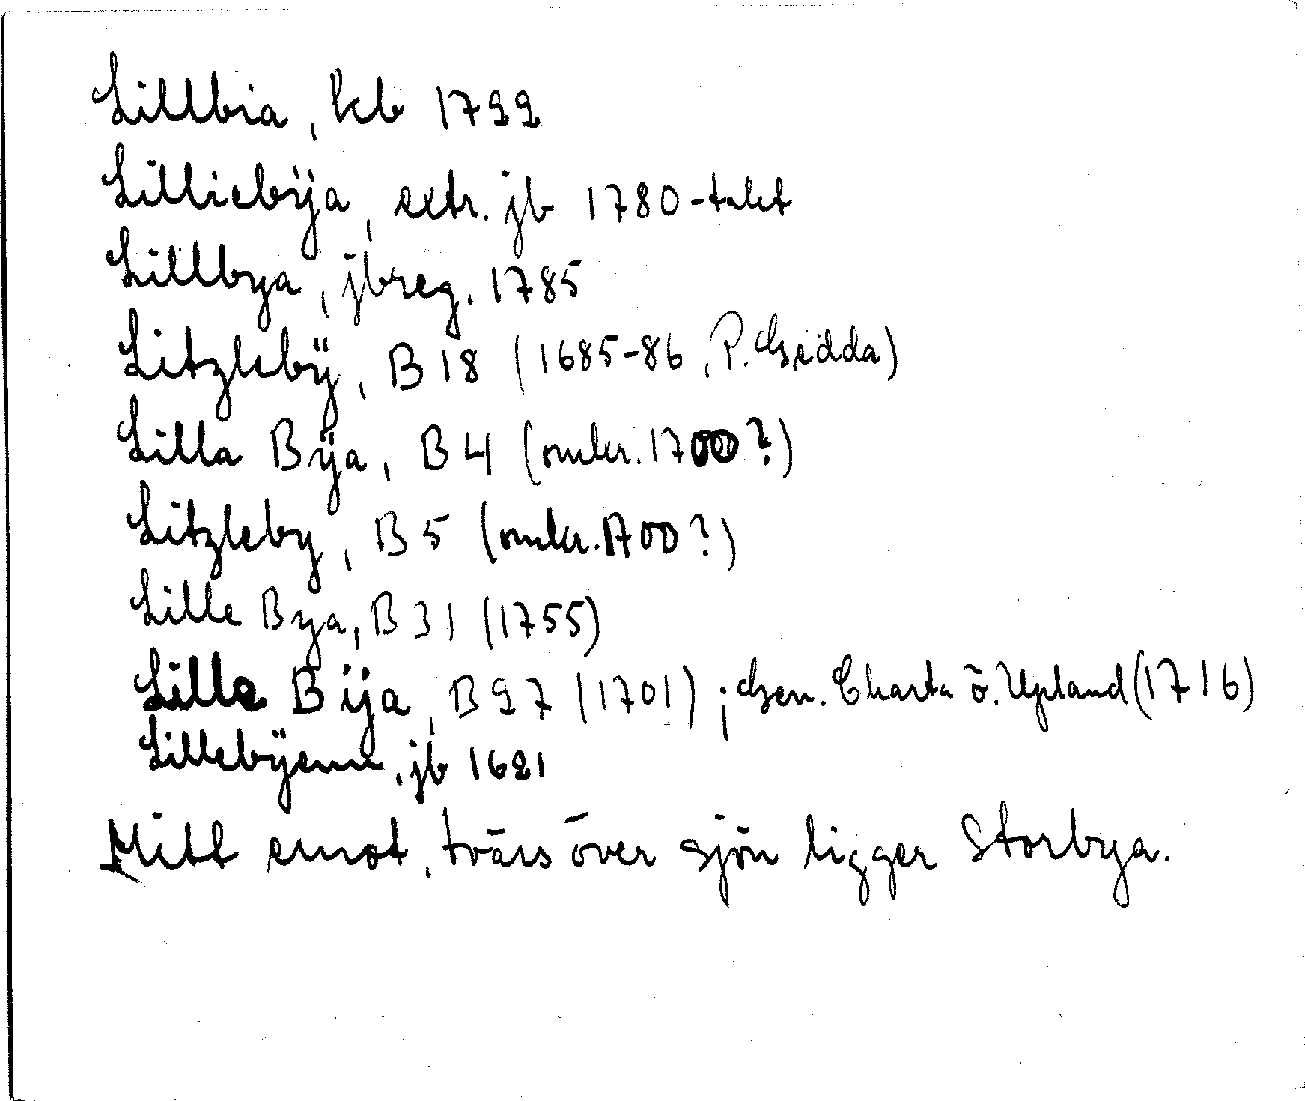 Lillbia, kb 1722
Lilliebÿa, extr. jb 1780-talet
Lillbya, jbreg. 1785
Litzlebÿ, B 18 (1685-86, P. Gedda)
Lilla Bÿa, B 4 (omkr. 1700?)
Litzleby, B 5 (omkr. 1700?)
Lille Bya, B 31 (1755)
Lilla Bÿa, B 27 (1701); Gen. Charta ö. Upland (1716)
Lillebÿenn, jb 1621
Mitt emot, tvärs över sjön ligger Storbya.